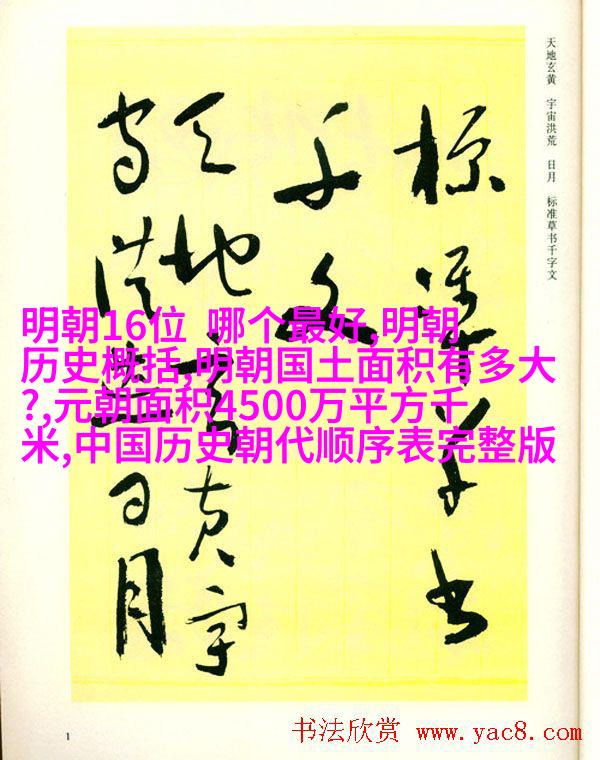 天地玄黄 宇宙洪荒 日月 标准草书千字文
標準草書
千文
天地玄黄宇
宙洪荒日月
明朝16位 哪个最好,明朝
历史概括,明朝国土面积有多大
?,元朝面积4500万平方千
米,中国历史朝代顺序表完整版
1
书法欣赏 www.yac8.com